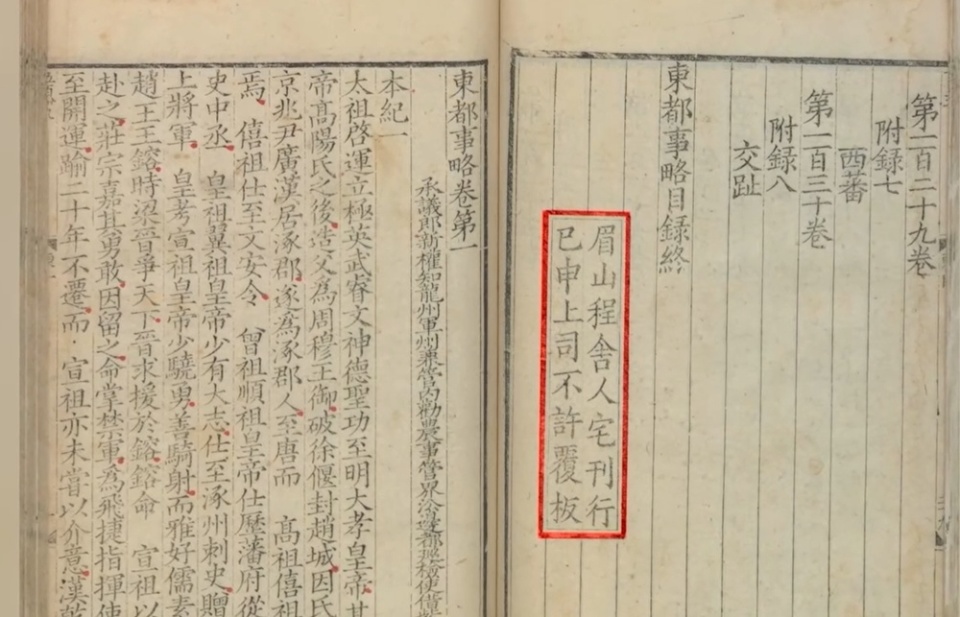 第一百二十九卷
附録七
西蕃
第一百三十卷
附録八
交趾
東都事略目録終
眉山程舍人宅刊行
已申上司不許覆板
東都事略卷第一
承議郎新權知龍州軍州兼管內勸農事管界沿邊都巡檢使
本紀一
太祖啓運立極英武睿文神德聖功至明大孝皇帝
帝高陽氏之後造父爲周穆王御破徐偃封趙城因氏
焉
京兆尹廣漢居涿郡遂爲涿郡人至唐而 高祖僖祖
焉 僖祖仕至文安令 曾祖順祖皇帝仕歷藩府從
史中丞 皇祖翼祖皇帝少有大志仕至涿州刺史贈
上將軍 皇考宣祖皇帝少驍勇善騎射而雅好儒素
趙王王鎔時梁晉爭天下晉求援於鎔鎔命 宣祖以
赴之莊宗嘉其勇敢因留之命掌禁軍爲飛捷指揮使
至開運踰二十年不遷而 宣祖亦未嘗以介意漢